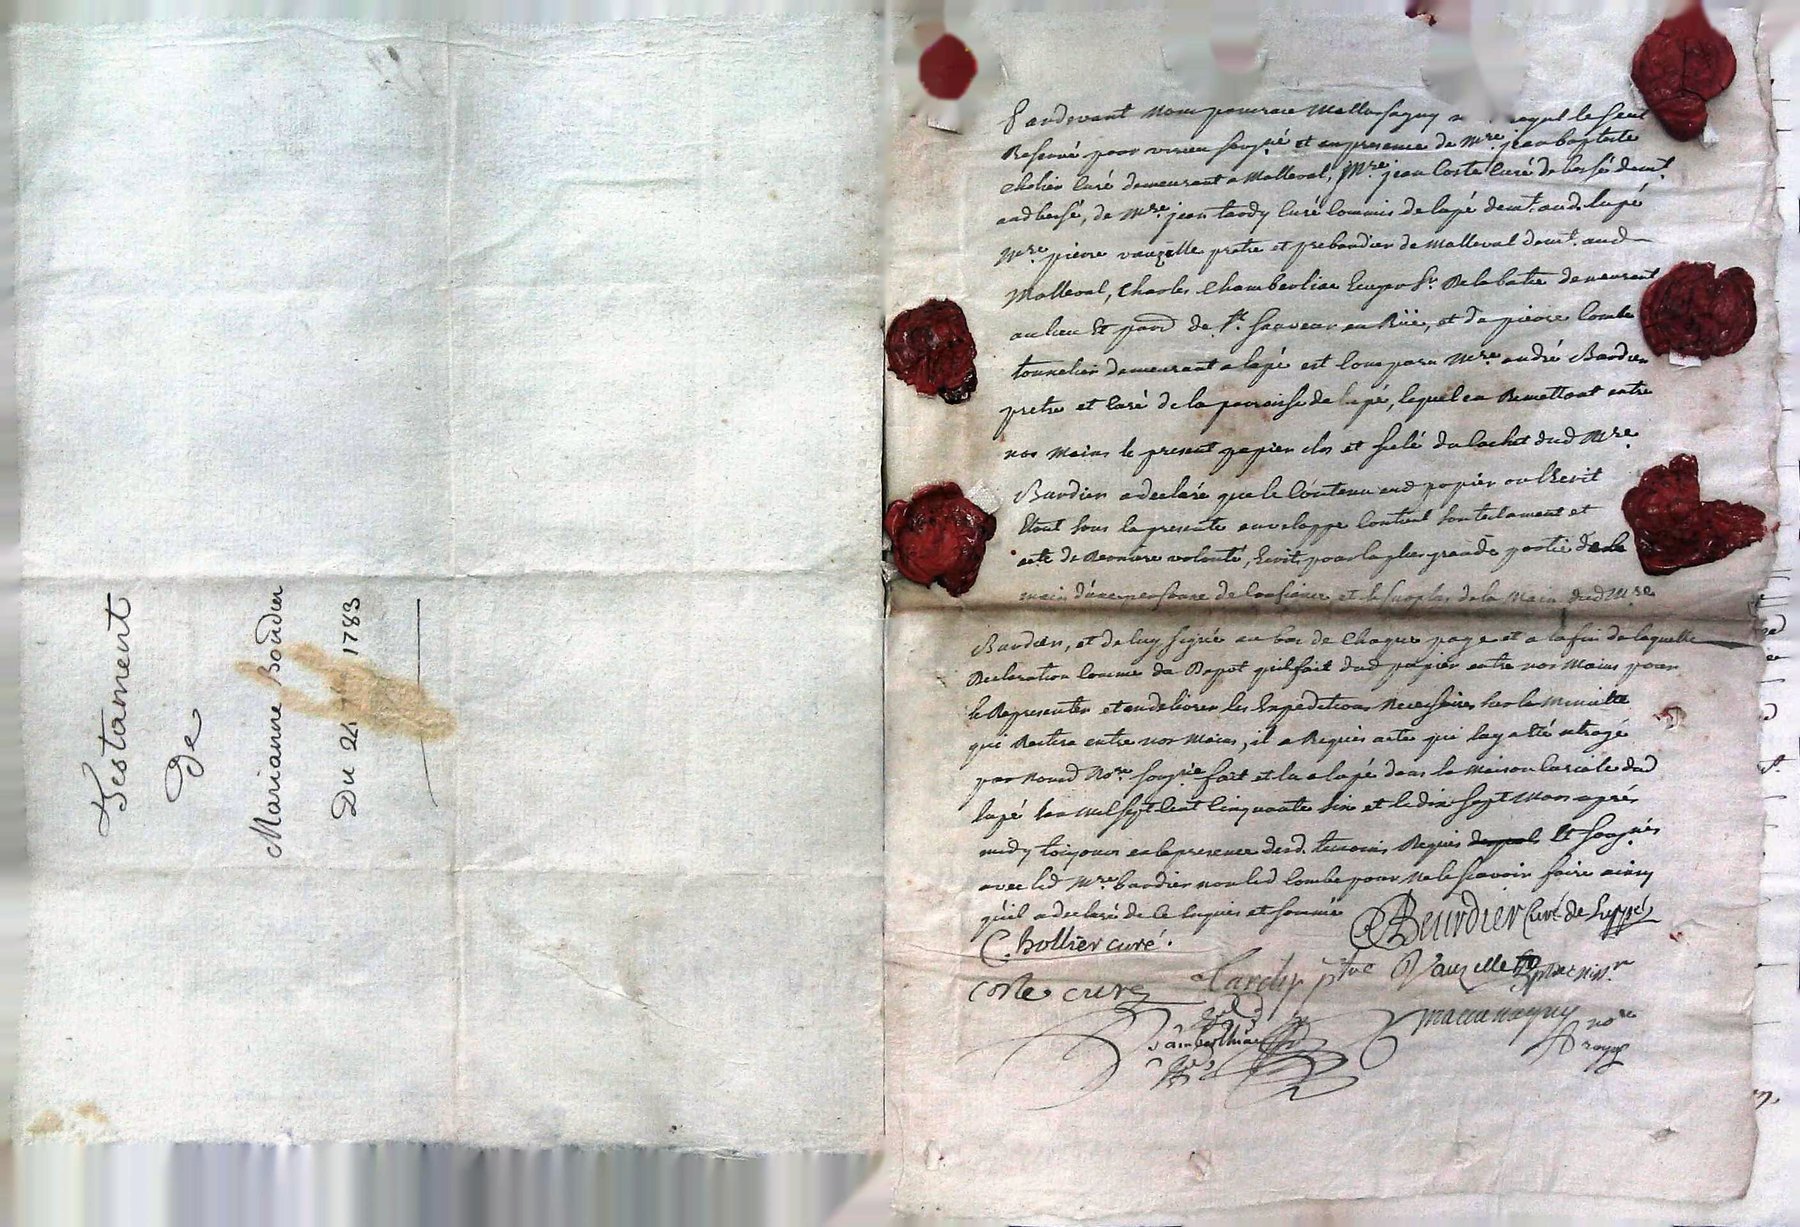 Testament
De
Marianne Bordier
Du 24 1783
Pardevant nous le seul
Reservé pour virieu soussigné et en presence de Mre. jean baptiste
Cholier curé demeurant a Malleval, Mre. jean Coste curé de bessé demt.
aud bessé, de Mre. jean tardy curé commis de lupé demt. aud. lupé
Mre. pierre vauzelle pretre et prebandier de Malleval demt. aud
Malleval, Charles Chamberliac Ecuyer Sr. Delabatie demeurant
au lieu et parr de St. Sauveur en Rüe, et de pierre Combe
tonnelier demeurant a lupé est comparu Mre. andré Bourdier
pretre et curé de la parroisse de lupé, lequel en Remettant entre
nos mains le present papier clos et selé du cachet dud Mre.
Bourdier a declaré que le Contenu aud papier ou l'Ecrit
Etant sous la presente enveloppe contient son testament et
acte de Derniere volonté, Ecrit pour la plus grande partie de la
main d'une personne de confiance et le surplus de la Main dud Mre
Bourdier, et de luy signé au bas de Chaque page et a la fin de laquelle
Declaration comme du Depot qu'il fait dud papier entre nos Mains pour
le Representer et en delivrer les Expeditions Necessaires sur la Minutte
qui Restera entre nos Mains, il a Requis acte qui luy a été octroyé
par nousd Nore. soussigné fait et lu a lupé dans la Maison Curiale dud
lupé l'an Mil sept cent cinquante six et le dix sept Mars aprés
midy toujours en la presence desd. temoins Requis et soussignés
avec led Mre. bourdier non led Combe pour ne le scavoir faire ainsy
qu'il a declaré de ce enquis et sommé
Beurdier Curé de Luppé
Chollier curé.
Coste curé
Tardy ptre
Vauzelle
nore
royal